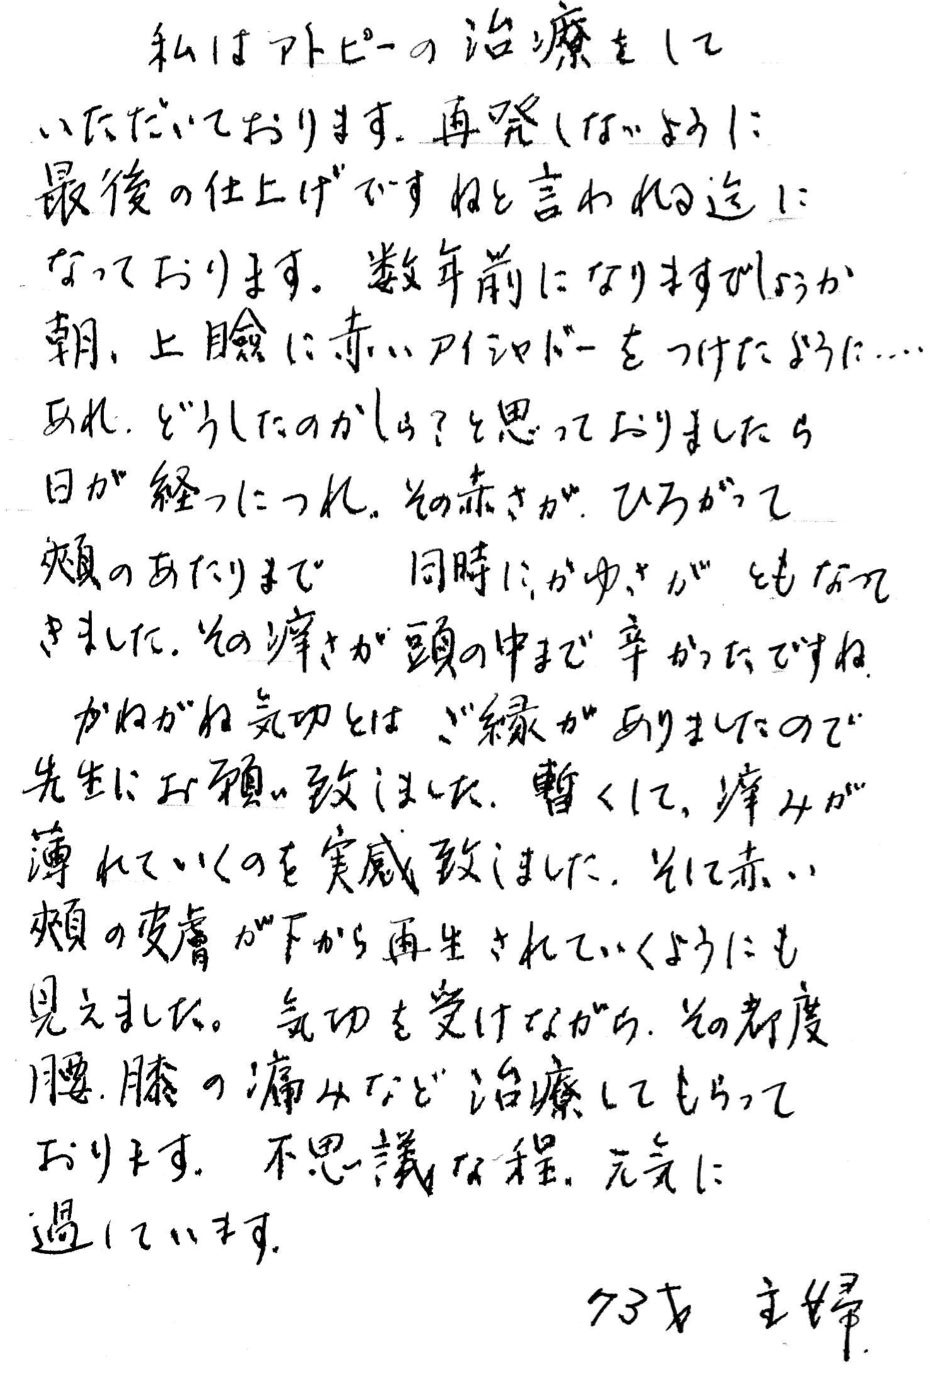 私はアトピーの治療をして
いただいております。再発しないように
最後の仕上げですねと言われる迄に
なっております。数年前になりますでしょうか
朝、上瞼に赤いアイシャドーをつけたように‥‥
あれ、どうしたのかしら?と思っておりましたら
日が経つにつれ、その赤さが、ひろがって
頬のあたりまで 同時に、かゆさが ともなって
きました。その痒さが頭の中まで 辛かったですね。
かねがね気功とは ご縁がありましたので
先生にお願い致しました。暫くして、痒みが
薄れていくのを実感致しました。そして赤い
頬の皮膚が下から再生されていくようにも
見えました。気功を受けながら、その都度
腰、膝の痛みなど治療してもらって
おります。不思議な程、元気に
過しています。
73才 主婦.